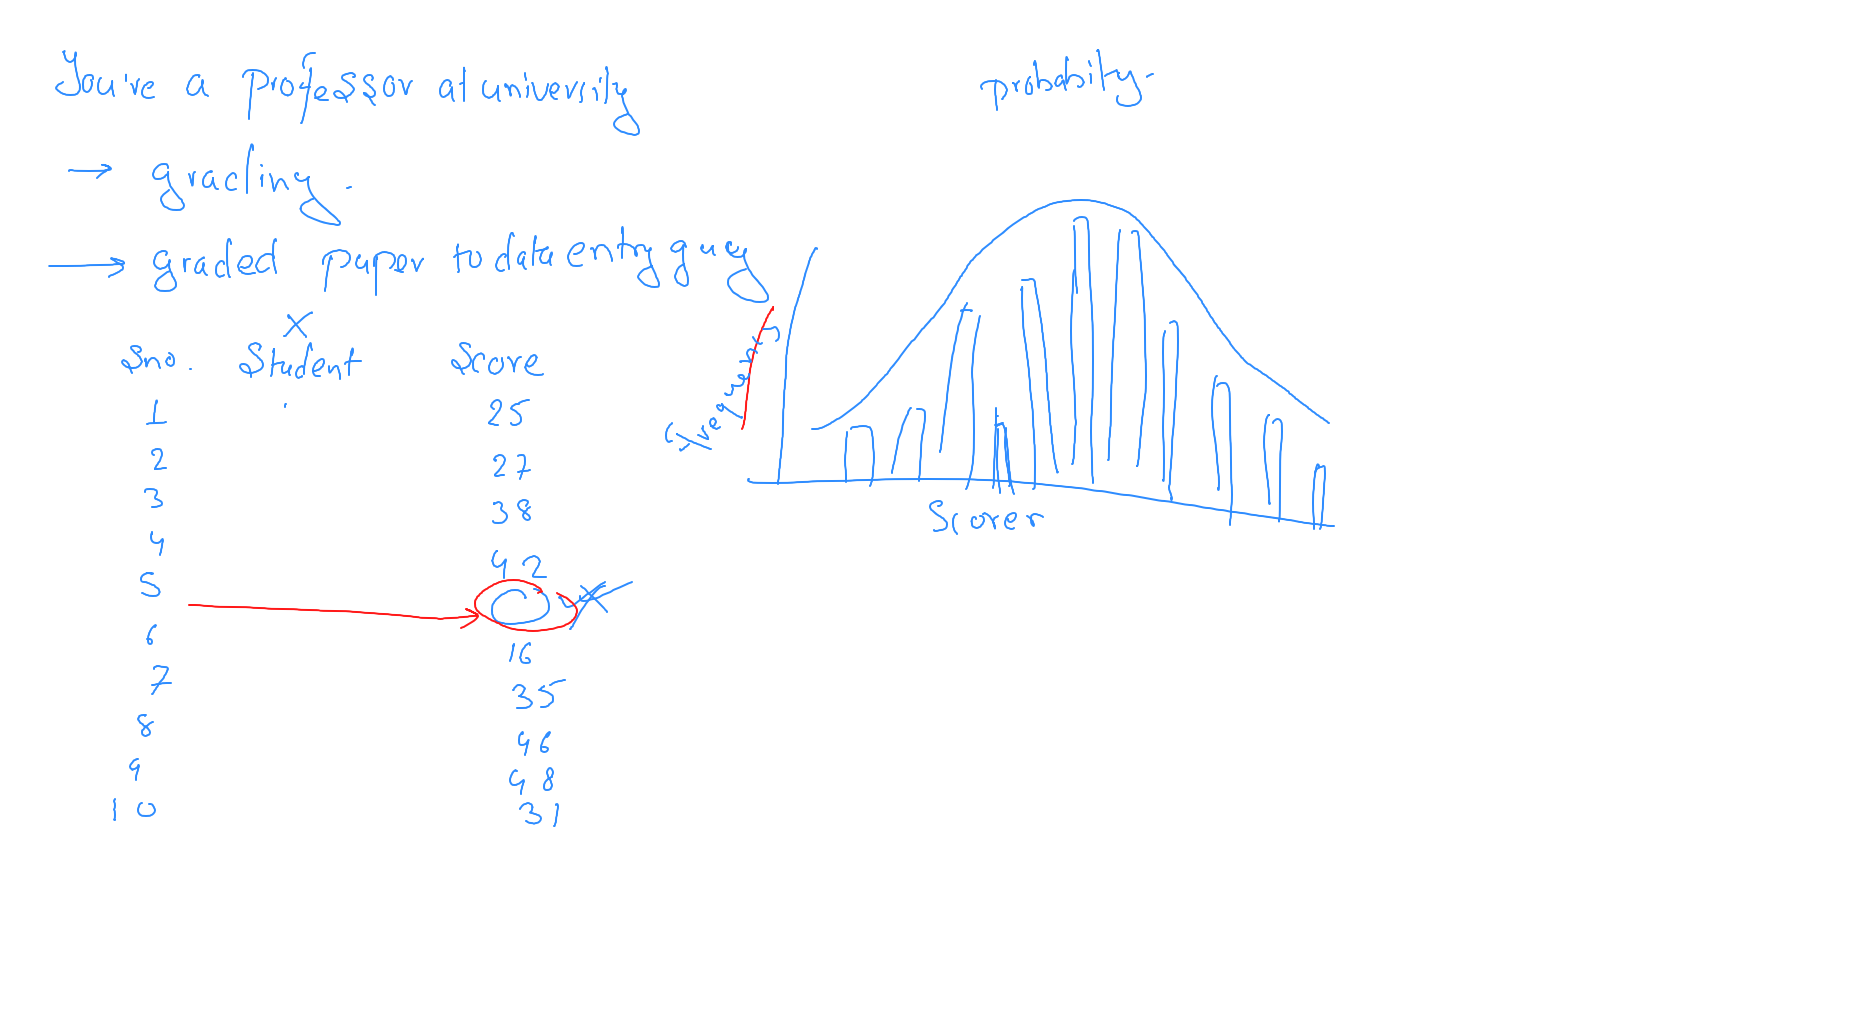 You're a professor at university
→ grading.
→ graded paper to data entry guy
X
Sno. Student Score
1 25
2 27
3 38
4 42
5
6 16
7 35
8 46
9 48
10 31
probabity-
frequency
Scorer